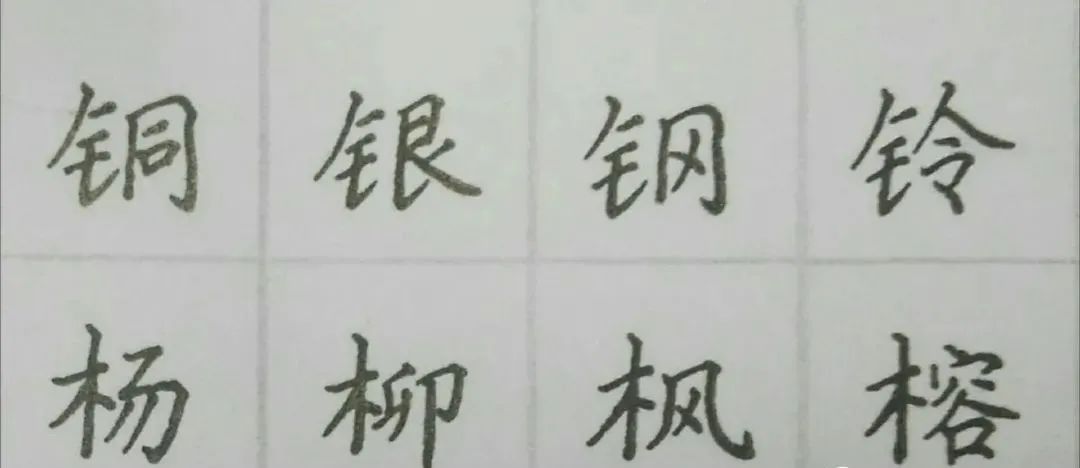 铜银钢铃
杨柳枫榕